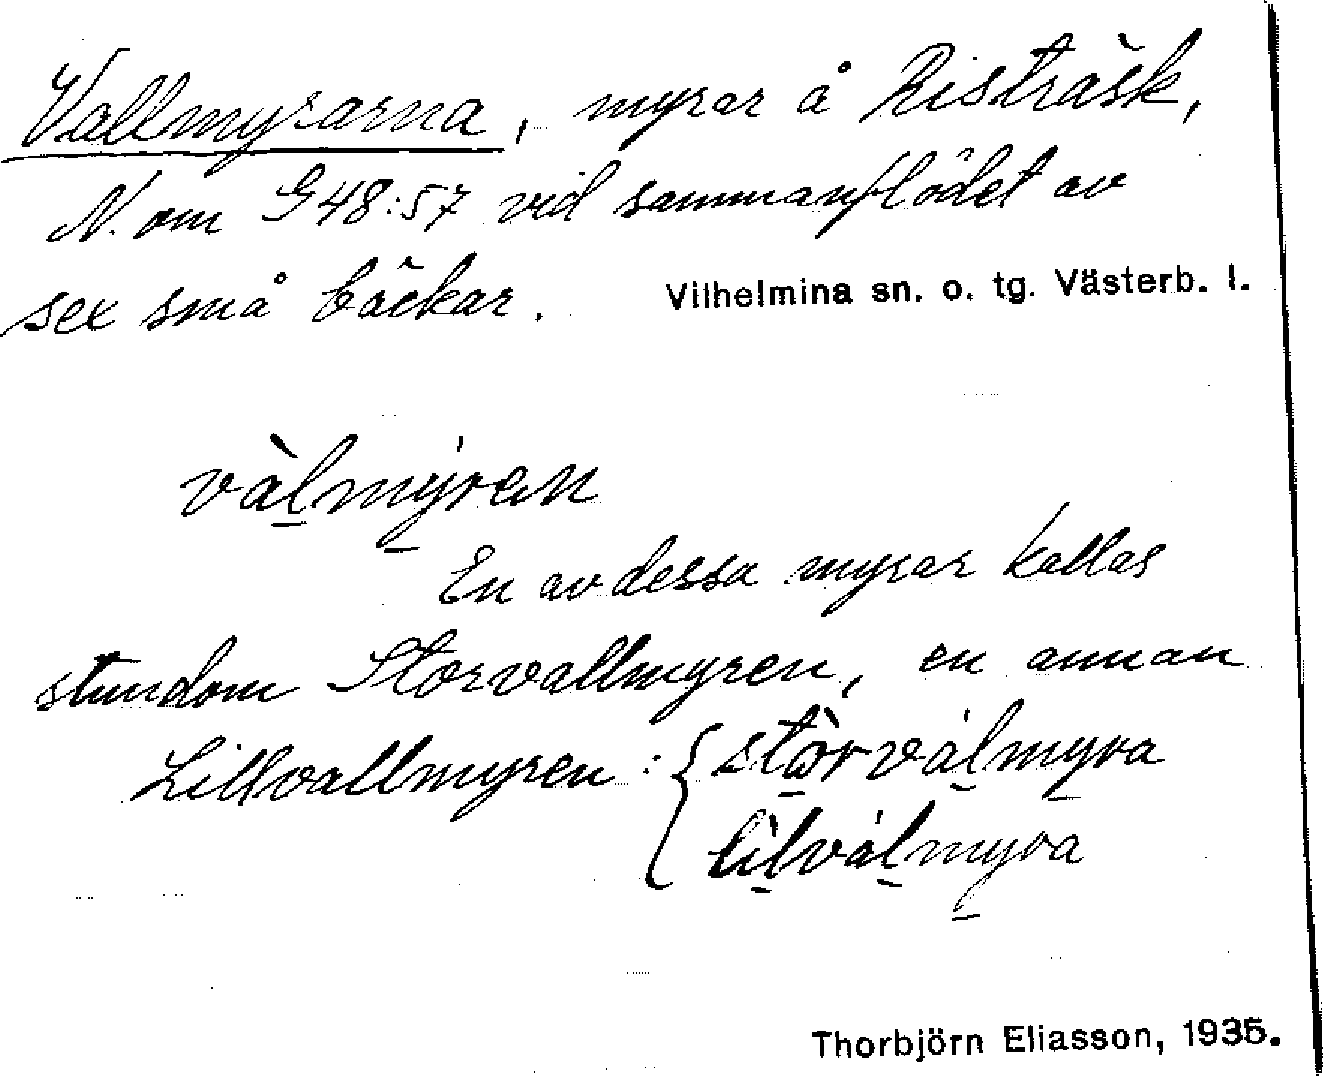 Vallmyrarna, myrar å Risträsk,
N. om G48:57 vid sammanflödet av
sex små bäckar. Vilhelmina sn. o. tg. Västerb. l.
vàl̲mýr̲ɐn
En av dessa myrar kallas
stundom Storvallmyren, en annan
Lillvallmyren: { stòrvál̲myra
lìl̲vál̲myra
Thorbjörn Eliasson, 1935.